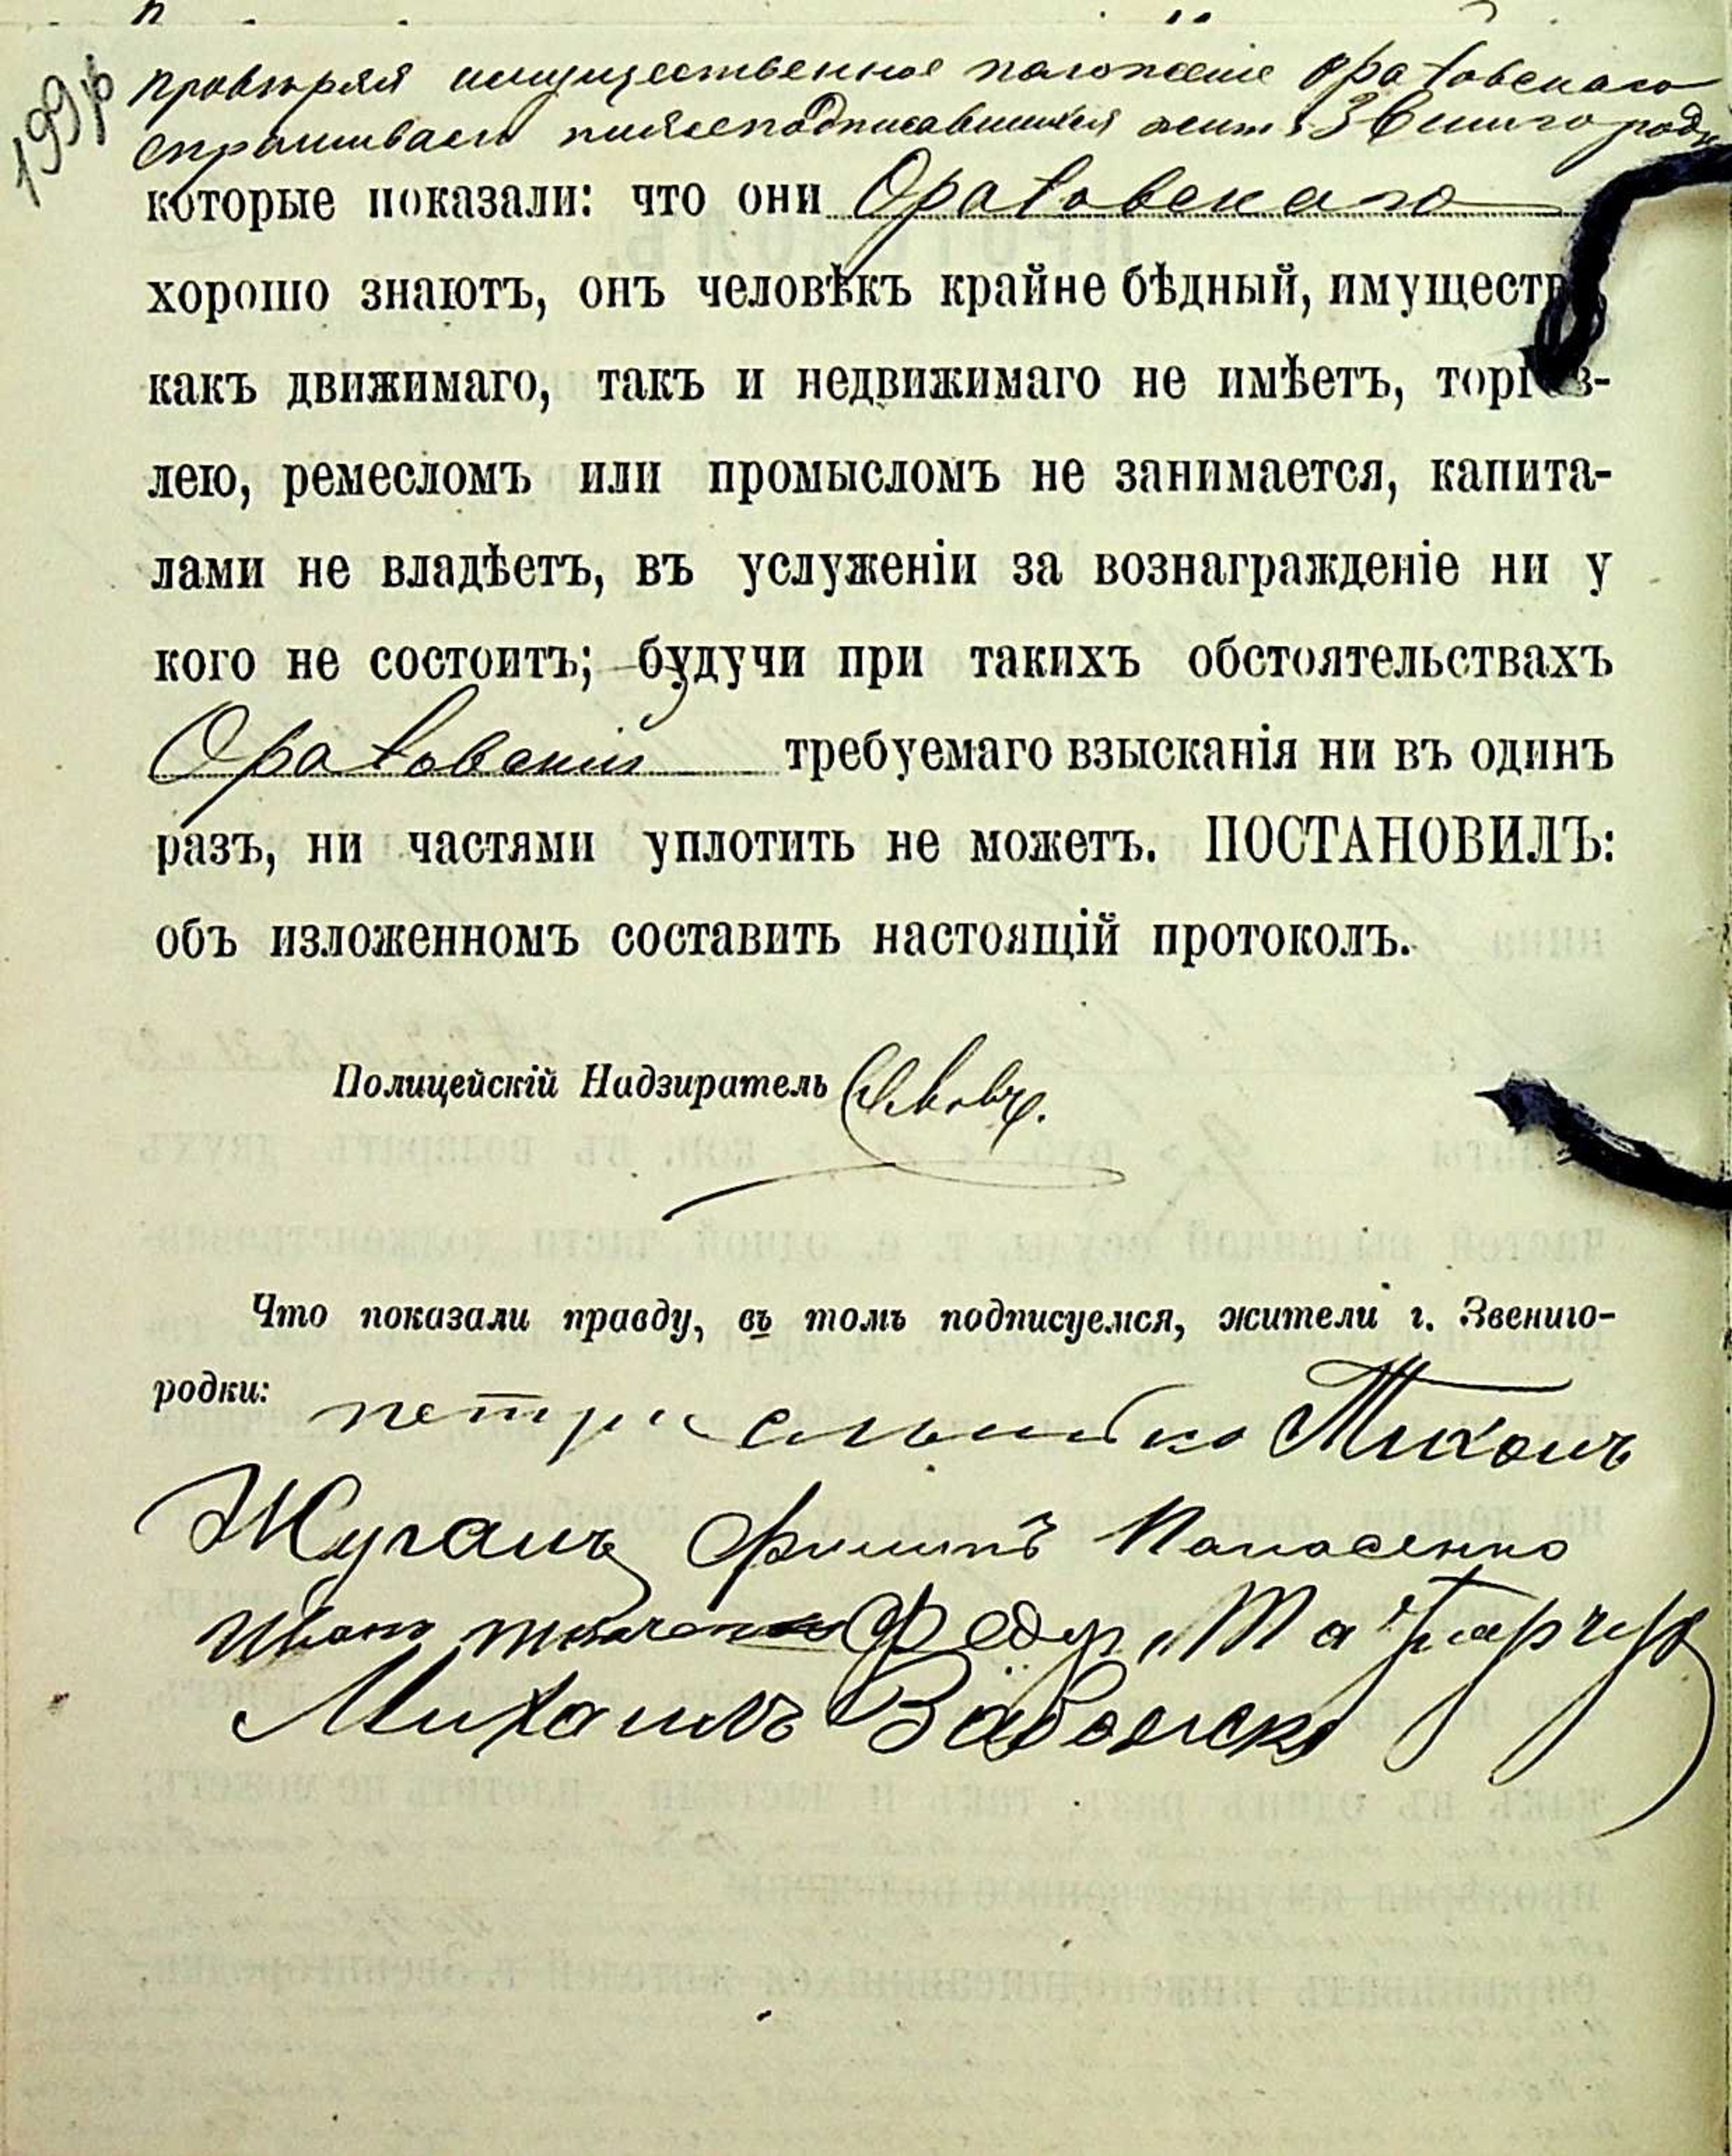 199 об
провѣряя имущественное положеніе Оратовскаго
спрашивалъ нижеподписавшихся жит. г. Звенигородк
которые показали: что они Оратовскаго
хорошо знаютъ, онъ человѣкъ крайне бѣдный, имуществ
какъ движимаго, такъ и недвижимаго не имѣетъ, торгов-
лею, ремесломъ или промысломъ не занимается, капита-
лами не владѣетъ, въ услуженіи за вознагражденіе ни у
кого не состоитъ; будучи при такихъ обстоятельствахъ
Оратовскій требуемаго взысканія ни въ одинъ
разъ, ни частями уплотить не можетъ. ПОСТАНОВИЛЪ:
объ изложенномъ составить настоящій протоколъ.
Полицейскій Надзиратель
Что показали правду, въ томъ подписуемся, жители г. Звениго-
родки: петр Тихонъ
Жуганъ Филипъ Панасенко
Иванъ Федир
Михаилъ